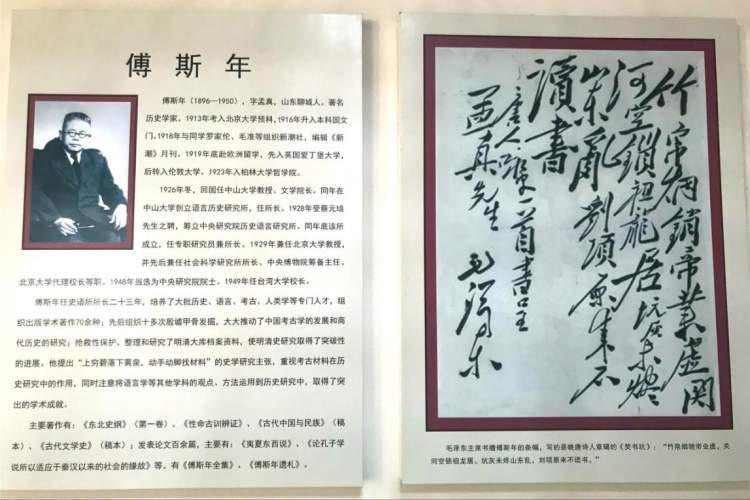 傅斯年
傅斯年（1896—1950），字孟真，山东聊城人。著名
历史学家。1913年考入北京大学预科，1916年升入本科国文
门。1918年与同学罗家伦、毛准等组织新潮社，编辑《新
潮》月刊。1919年底赴欧洲留学，先入英国爱丁堡大学，
后转入伦敦大学。1923年入柏林大学哲学院。
1926年冬，回国任中山大学教授、文学院长。同年在
中山大学创立语言历史研究所，任所长。1928年受蔡元培
先生之聘，筹立中央研究院历史语言研究所。同年底该所
成立，任专职研究员兼所长。1929年兼任北京大学教授，
并先后兼任社会科学研究所所长、中央博物院筹备主任、
北京大学代理校长等职。1948年当选为中央研究院院士。1949年任台湾大学校长。
傅斯年任史语所所长二十三年，培养了大批历史、语言、考古、人类学等专门人才，组
织出版学术著作70余种；先后组织十多次殷墟甲骨发掘，大大推动了中国考古学的发展和商
代历史的研究；抢救性保护、整理和研究了明清大库档案资料，使明清史研究取得了突破性
的进展。他提出“上穷碧落下黄泉，动手动脚找材料”的史学研究主张，重视考古材料在历
史研究中的作用，同时注意将语言学等其他学科的观点、方法运用到历史研究中，取得了突
出的学术成就。
主要著作有：《东北史纲》（第一卷）、《性命古训辨证》、《古代中国与民族》（稿
本）、《古代文学史》（稿本）；发表论文百余篇，主要有：《夷夏东西说》、《论孔子学
说所以适应于秦汉以来的社会的缘故》等，有《傅斯年全集》、《傅斯年遗札》。
竹帛烟销帝业虚关
河空锁祖龙居坑灰未烬
山东乱刘项原来不
读书
唐人咏一首书呈
孟真先生 毛泽东
毛泽东主席书赠傅斯年的条幅，写的是晚唐诗人章碣的《焚书坑》：“竹帛烟销帝业虚，关
河空锁祖龙居，坑灰未烬山东乱，刘项原来不读书。”